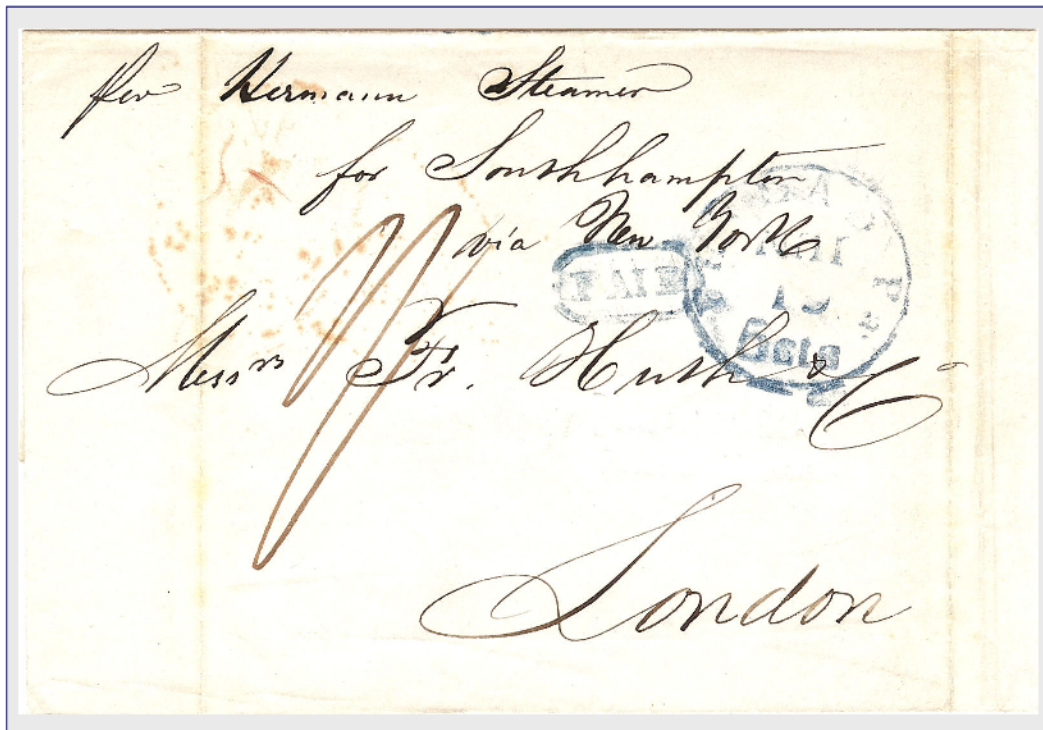 per Hermann Steamer
for Southhampton
via New York
PAID
19
5cts
Messrs Fr. Huth & Co
London